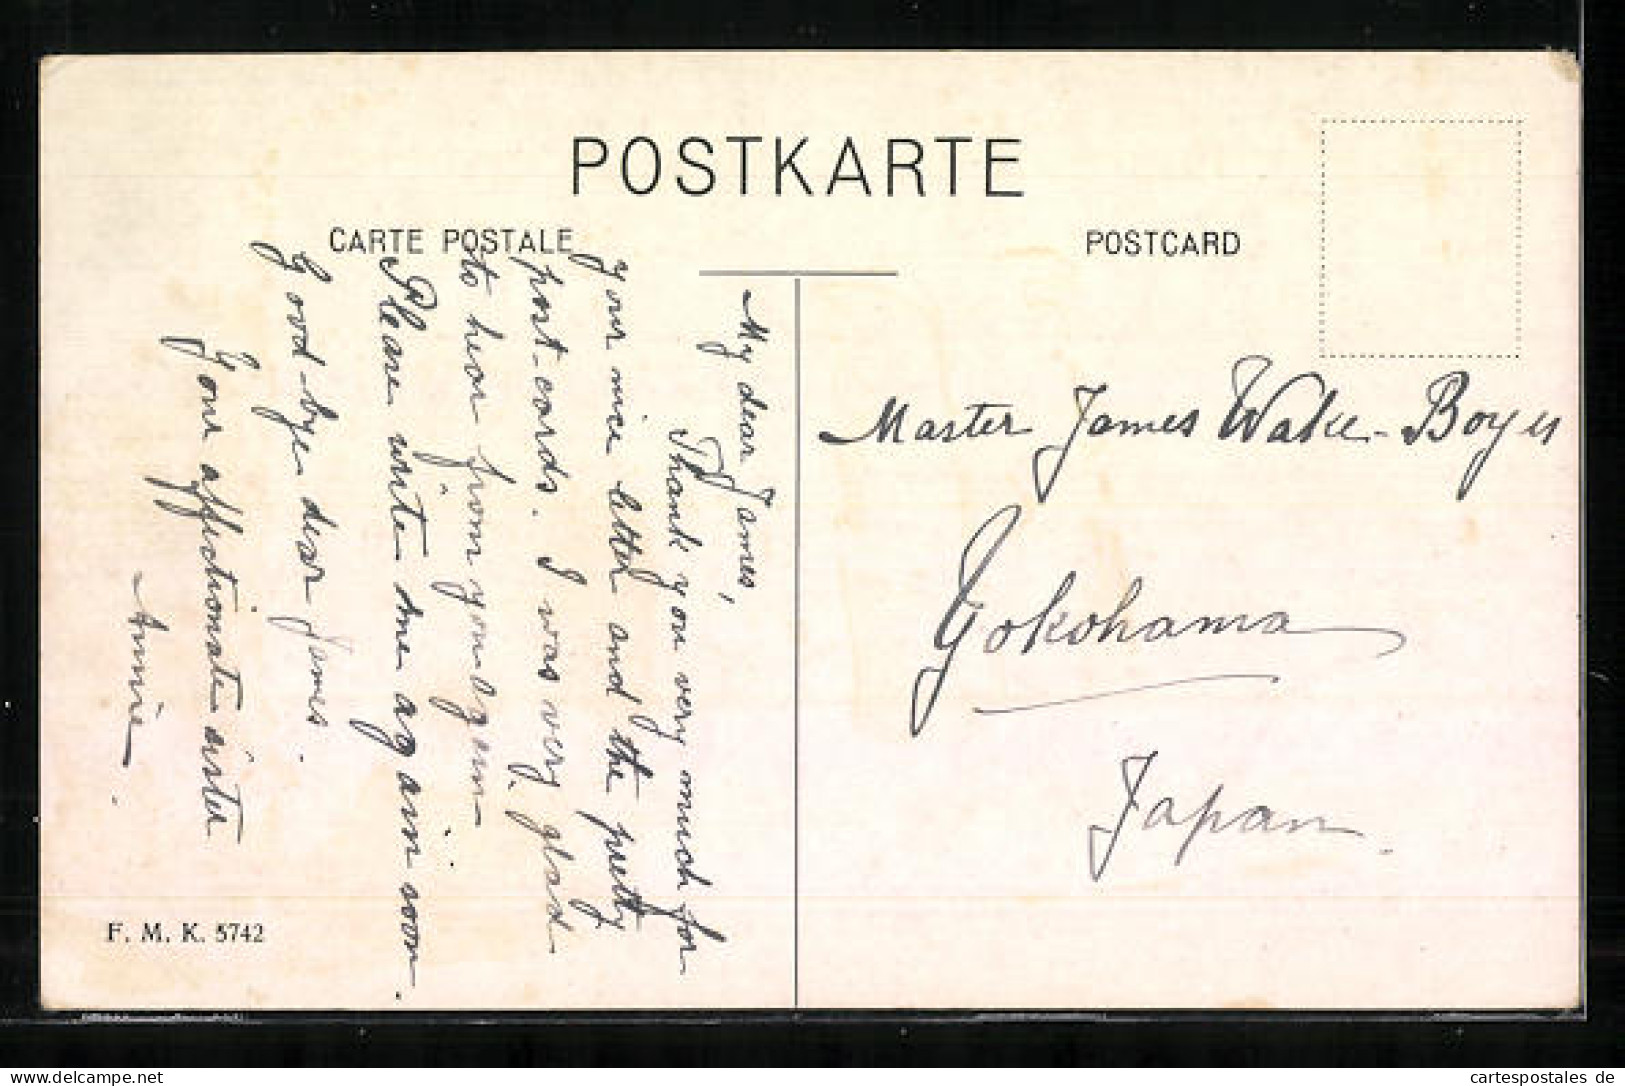 POSTKARTE
CARTE POSTALE
POSTCARD
My dear James,
Thank you very much for
your nice letter and the pretty
post-cards. I was very glad
to hear from you again
Please write me again soon.
Good-bye dear James.
Your affectionate sister
Annie.
F. M. K. 5742
Master James
Yokohama
Japan.
Ihr Ansichtskartenprofi
cartespostales de